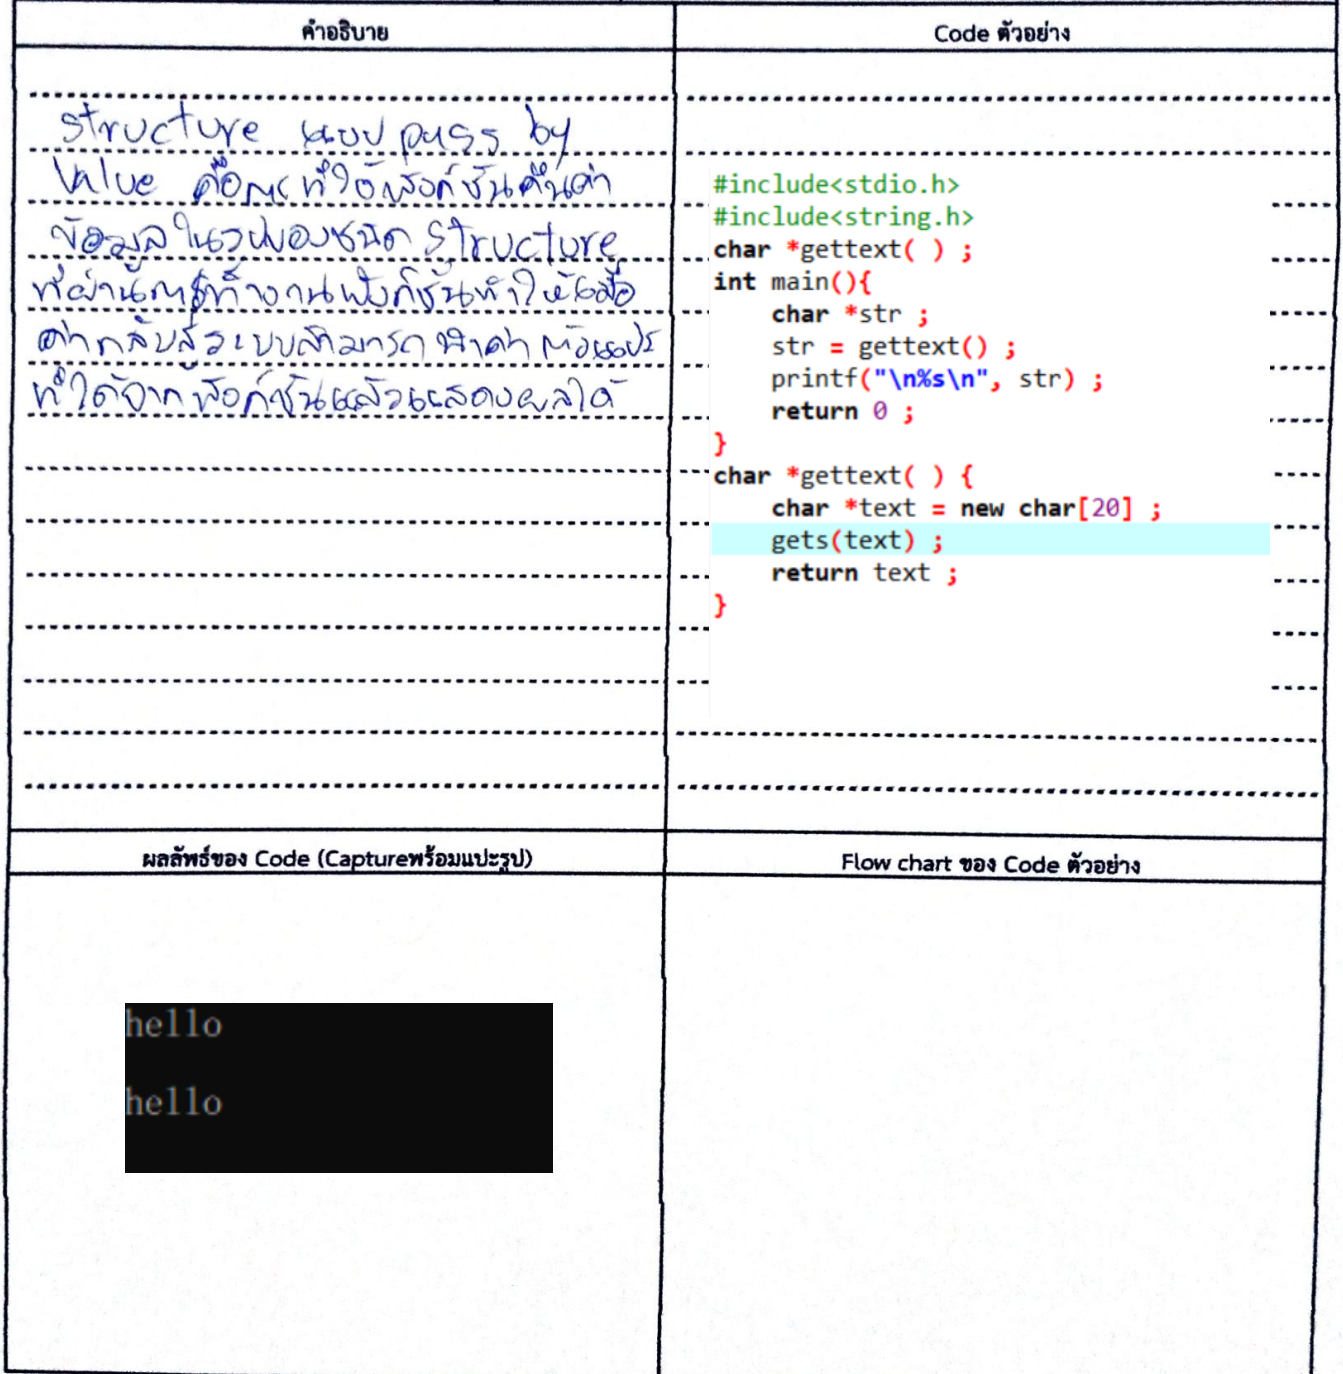 คำอธิบาย
Code ตัวอย่าง
structure แบบ pass by
Value คือการทำให้ฟังก์ชันคืนค่า
ข้อมูลในรูปของชนิด structure
ที่ผ่านการทำงานฟังก์ชันทำให้เมื่อ
ค่ากลับสู่ระบบสามารถนำค่า
ทำได้จากฟังก์ชันแล้วแสดงผลได้
#include<stdio.h>
#include<string.h>
char *gettext( ) ;
int main(){
char *str ;
str = gettext() ;
printf("\n%s\n", str) ;
return 0 ;
}
char *gettext( ) {
char *text = new char[20] ;
gets(text) ;
return text ;
}
ผลลัพธ์ของ Code (Captureพร้อมแปะรูป)
Flow chart ของ Code ตัวอย่าง
hello
hello